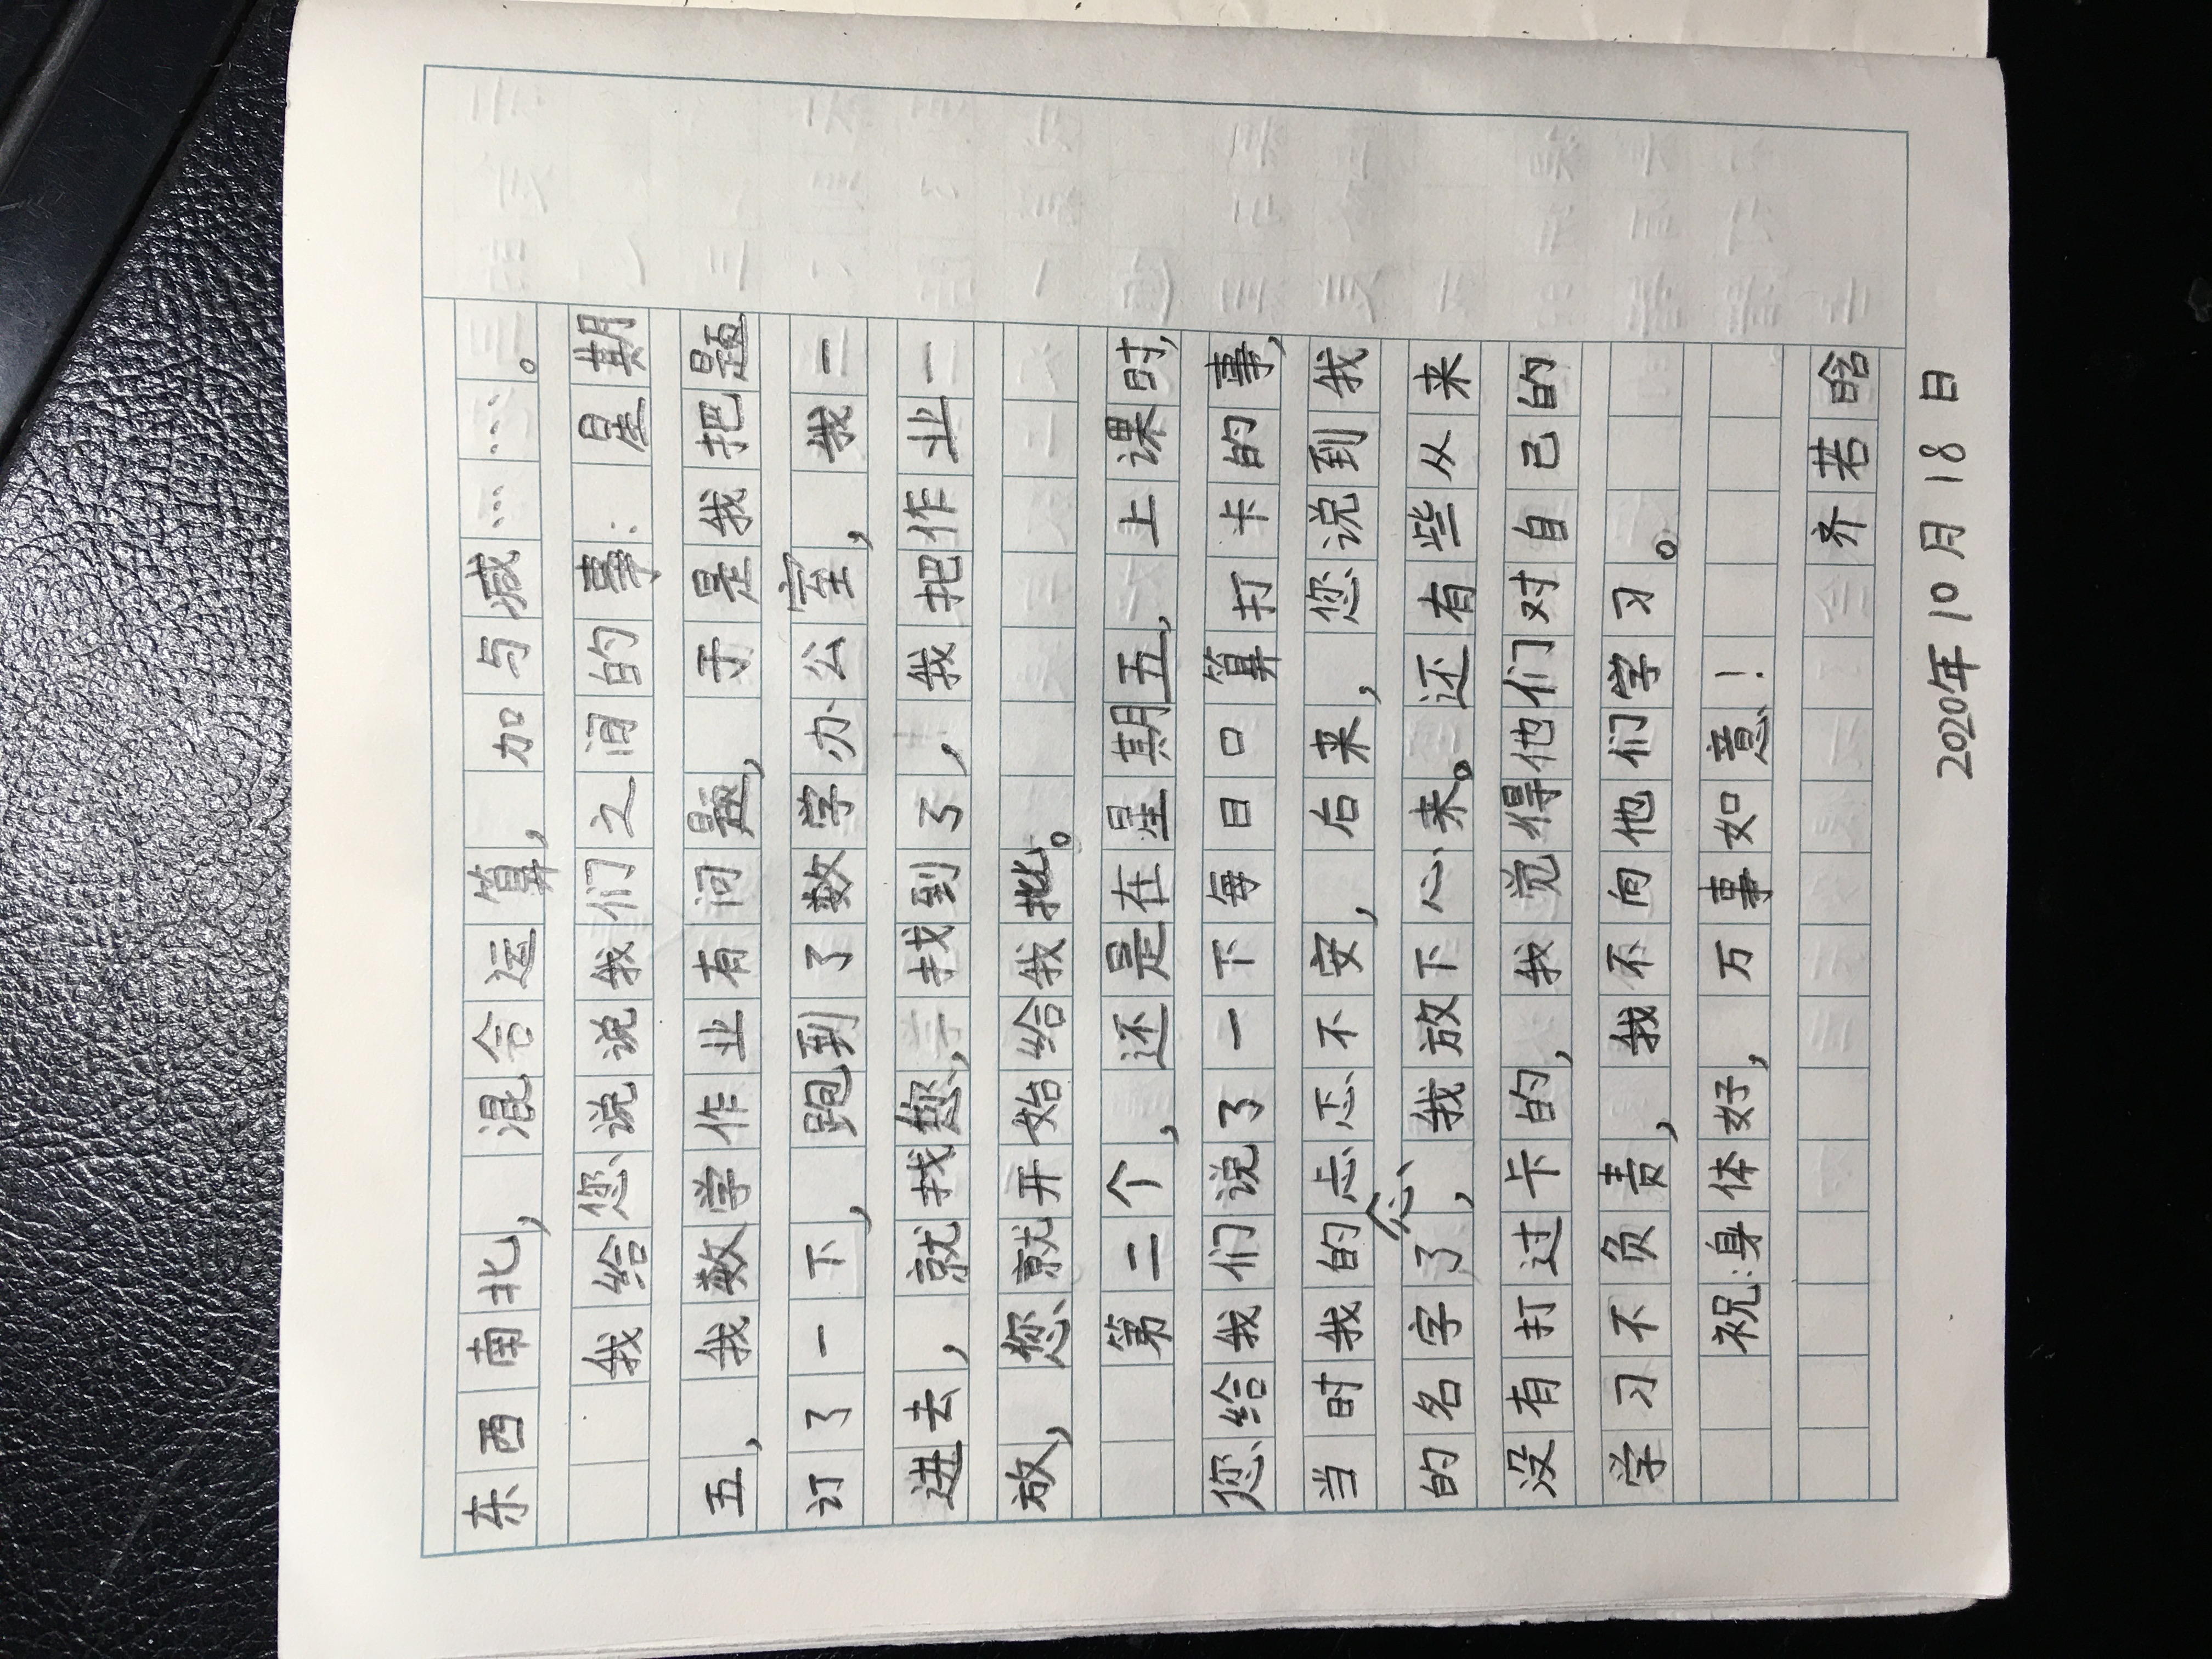 东西南北，混合运算，加与减……。
我给您说说我们之间的事：星期
五，我数学作业有问题，于是我把题
订了一下，跑到了数学办公室，我一
进去，就找您，找到了，我把作业一
放，您就开始给我批。
第二个，还是在星期五，上课时，
您给我们说了一下每日口算打卡的事，
当时我的忐忑不安，后来，您说到我
的名字了，我放下心来。还有些从来
没有打过卡的，我觉得他们对自己的
学习不负责，我不向他们学习。
祝：身体好，万事如意！
齐若晗
2020年10月18日